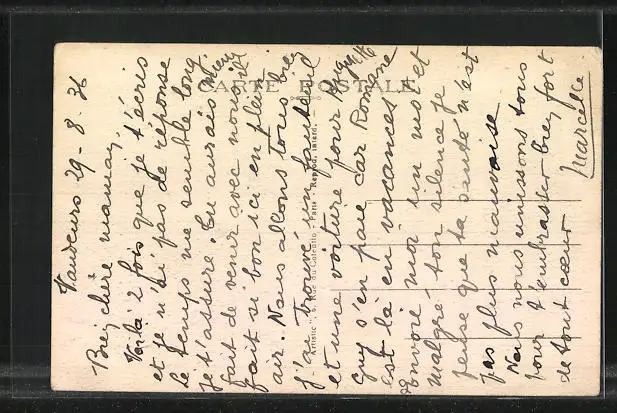 Vaudeurs 29-8-36
Bien chère maman,
Voilà 2 fois que je t'écris
et je n'ai pas de réponse
Le temps me semble long
je t'assure. Tu aurais mieux
fait de venir avec nous il
fait si bon ici en plein
air. Nous allons tous bien
j'ai trouvé un fauteuil
et une voiture pour
Guy s'en paie car Romane
est là en vacances
Envoie moi un mot et
malgré ton silence je
pense que ta santé n'est
pas plus mauvaise.
Nous nous unissons tous
pour t'embrasser bien fort
de tout cœur
Marcelle
CARTE POSTALE
Artistic - 6, Rue du Calentin - Paris - Reprod. interd.